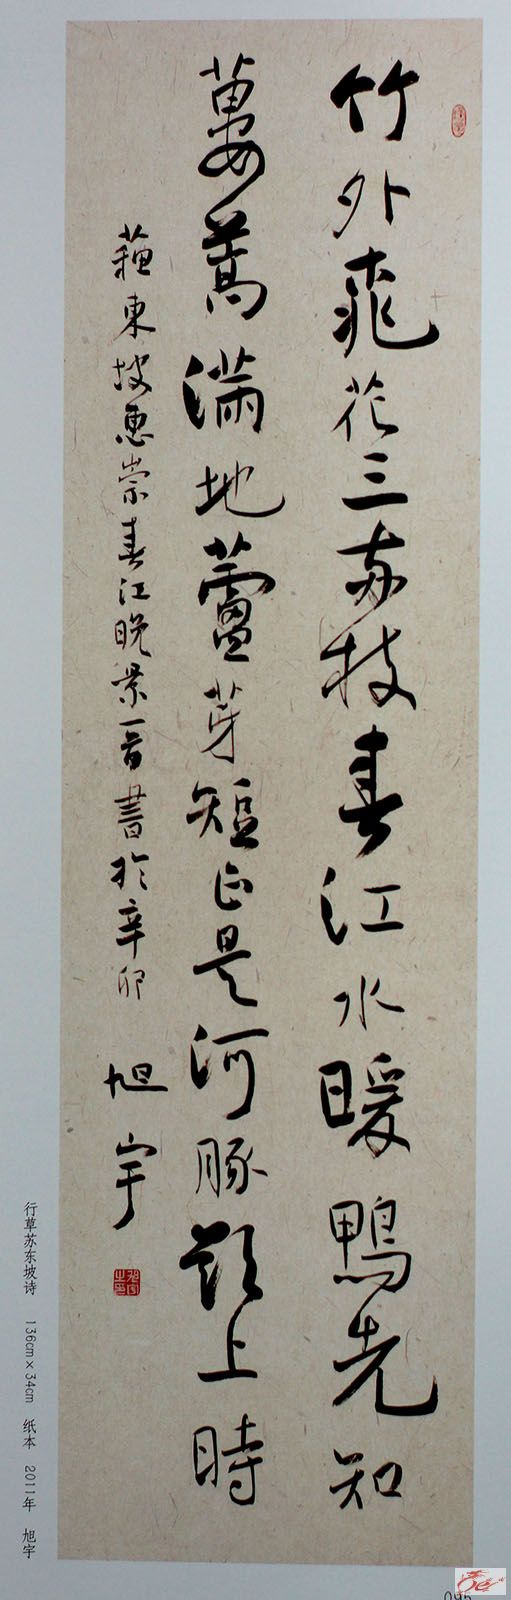 竹外桃花三两枝春江水暖鸭先知
蒌蒿满地蘆芽短正是河豚欲上時
蘇東坡惠崇春江晚景一首書於辛卯
旭宇
行草苏东坡诗 136cm×34cm 纸本 2011年 旭宇